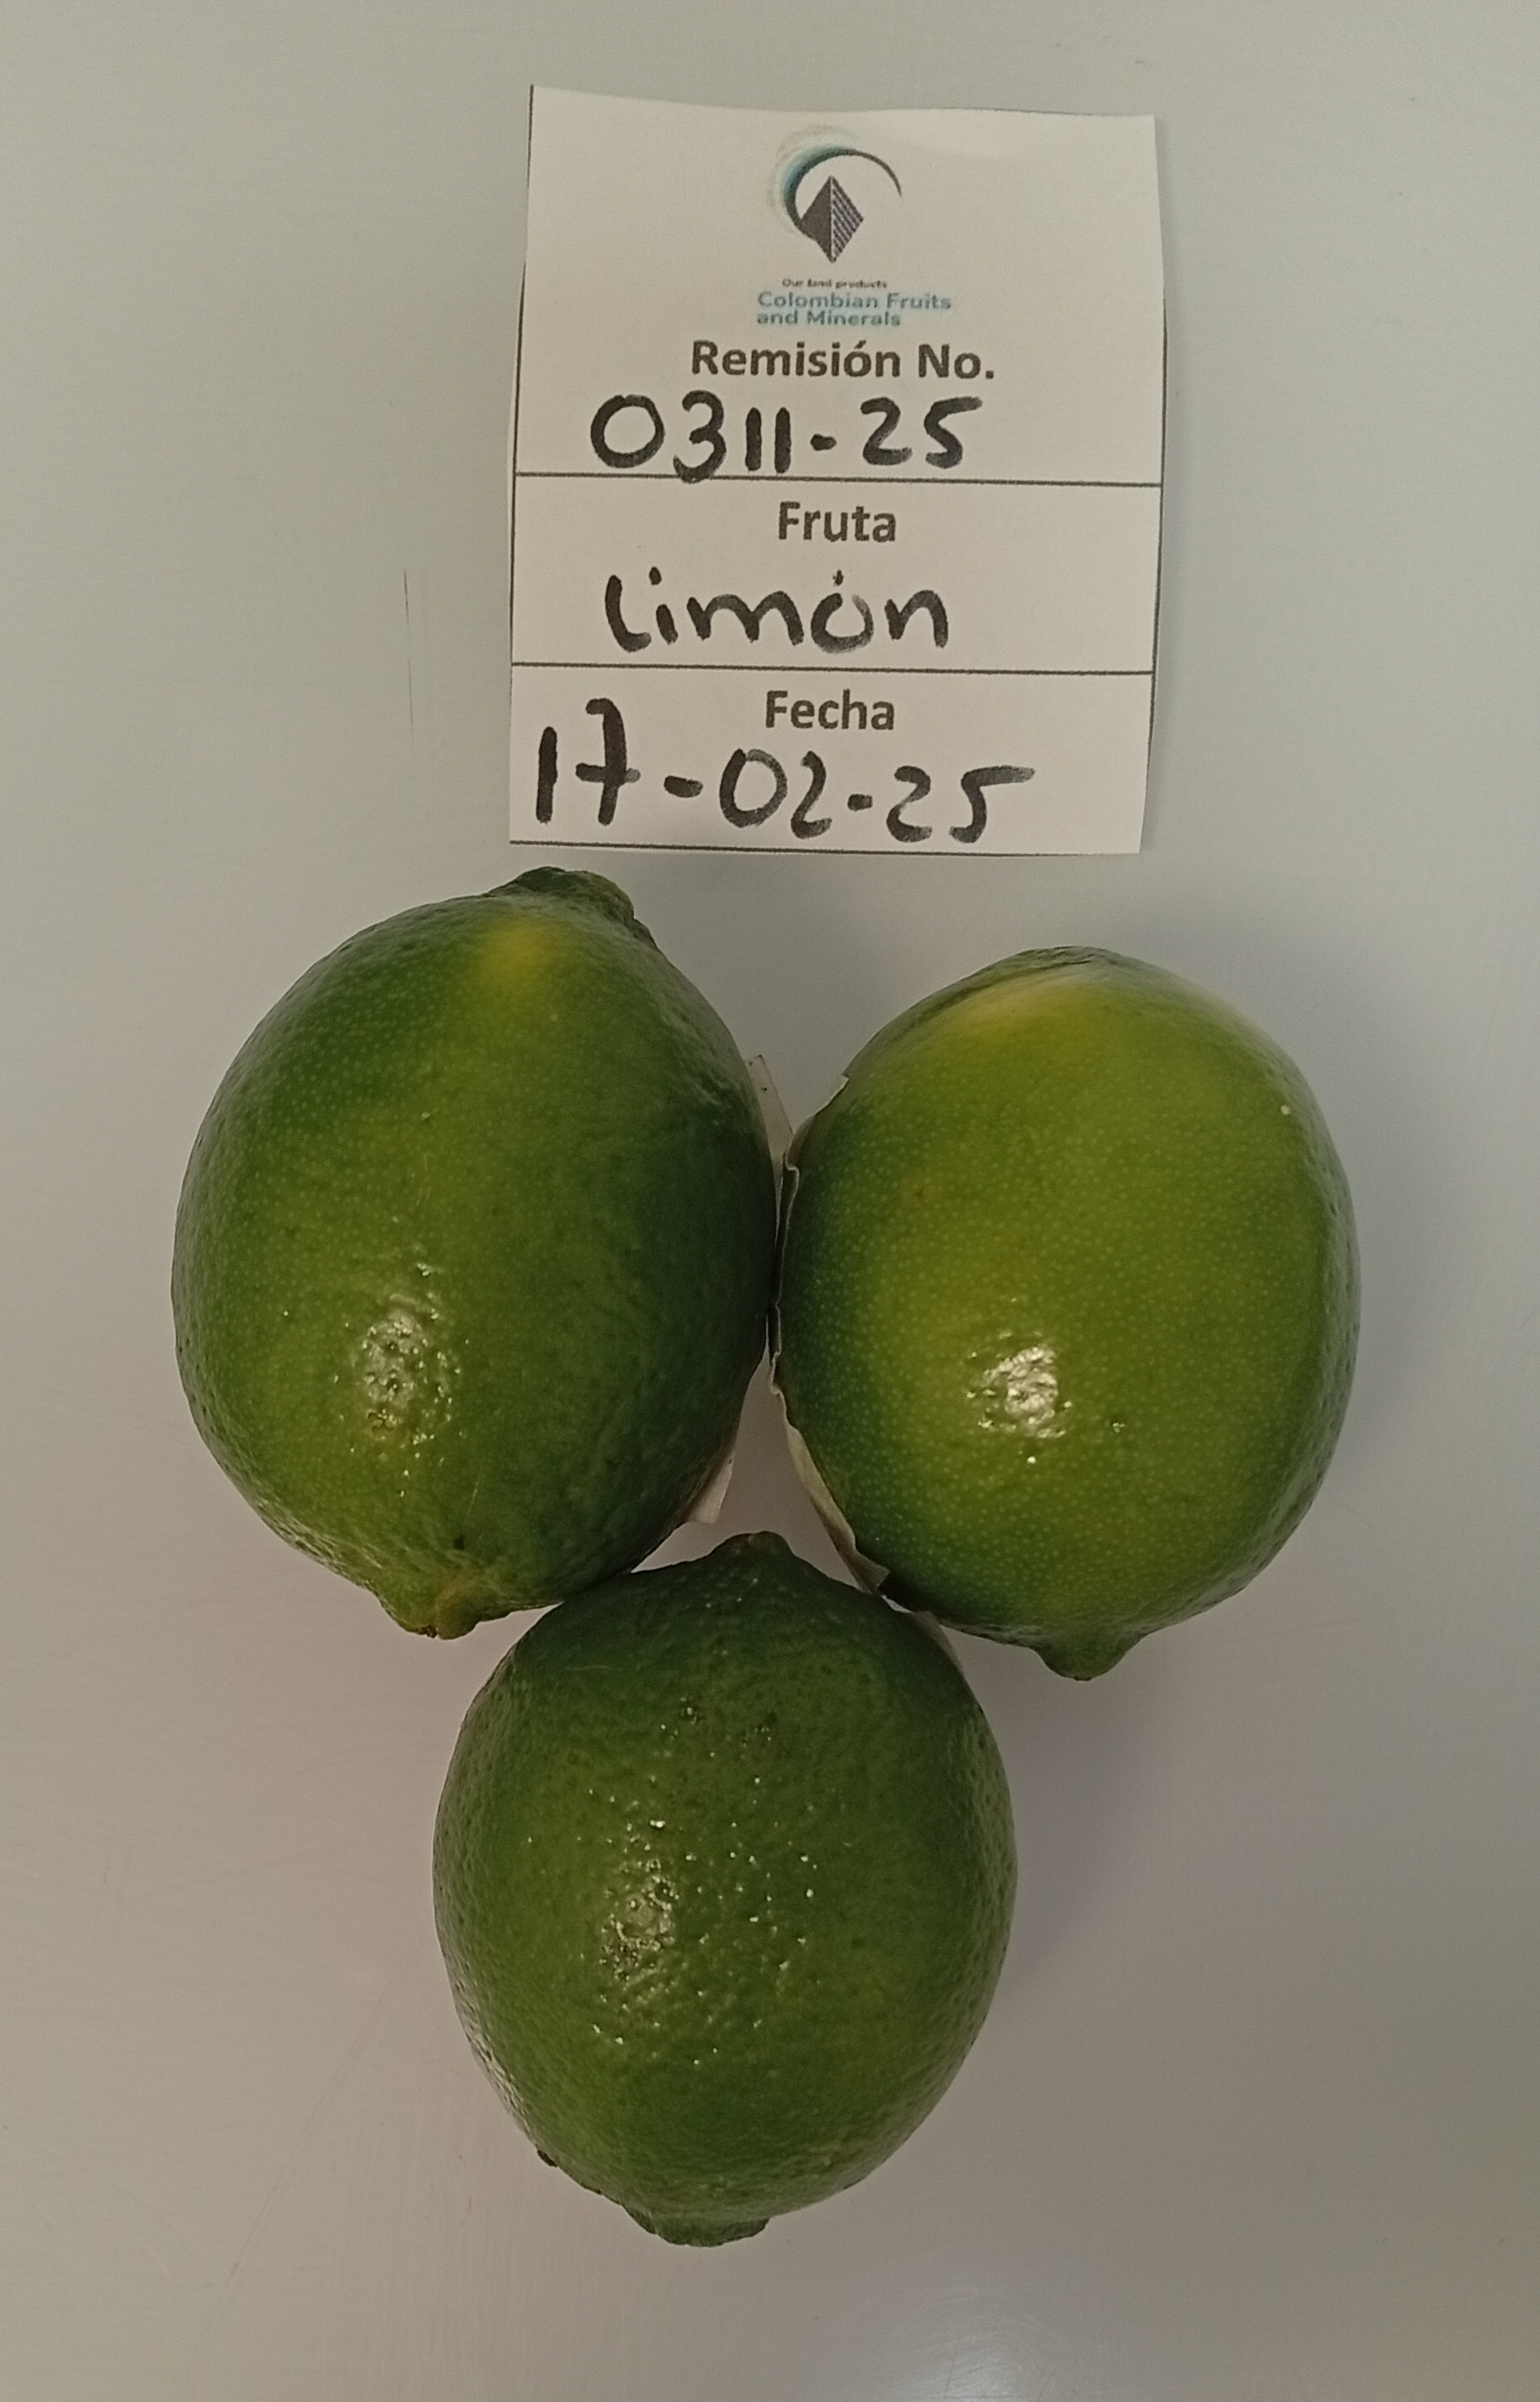 Our land products
Colombian Fruits
and Minerals
Remisión No.
0311-25
Fruta
Limón
Fecha
17-02-25